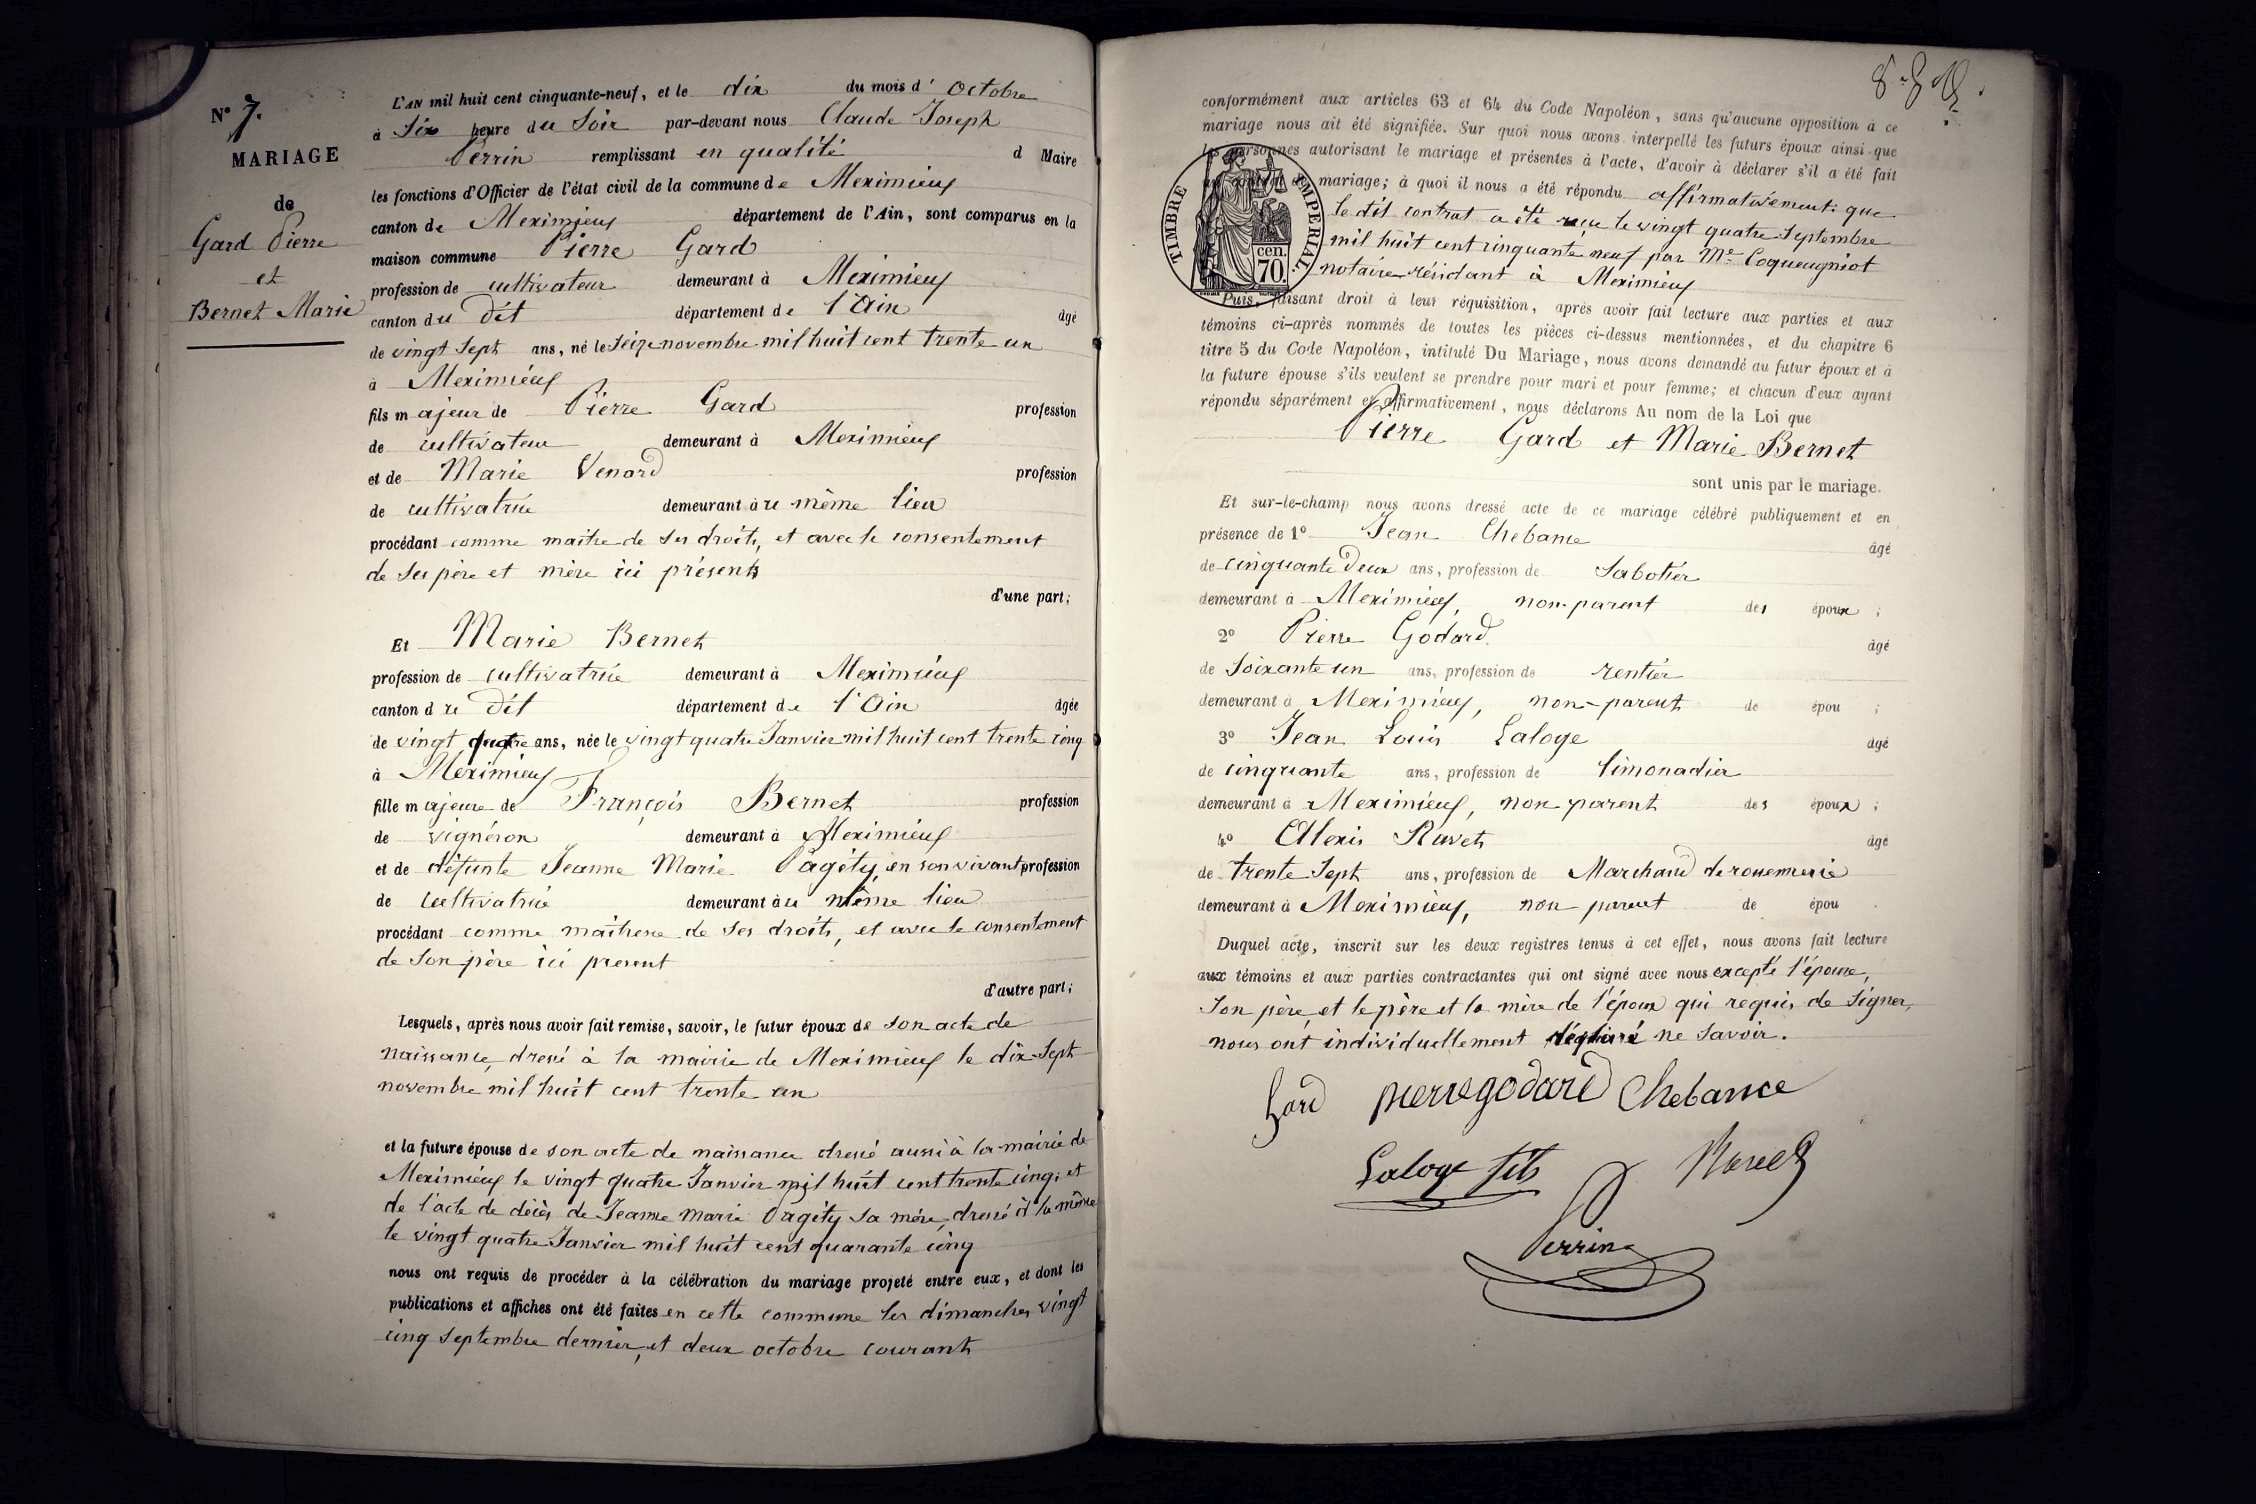 N° 7.
MARIAGE
de
Gard Pierre
et
Bernet Marie
L'AN mil huit cent cinquante-neuf, et le dix du mois d' octobre
à Six heure du Soir par-devant nous Claude Joseph
Perrin remplissant en qualité d Maire
les fonctions d'Officier de l'état civil de la commune de Meximieux
canton de Meximieux département de l'Ain, sont comparus en la
maison commune Pierre Gard
profession de cultivateur demeurant à Meximieux
canton du dit département de l'Ain âgé
de vingt Sept ans, né le Seize novembre mil huit cent trente un
à Meximieux
fils majeur de Pierre Gard profession
de cultivateur demeurant à Meximieux
et de Marie Venard profession
de cultivatrice demeurant au même lieu
procédant comme maitre de Ses droits, et avec le consentement
de Ses père et mère ici présents
d'une part;
Et Marie Bernet
profession de cultivatrice demeurant à Meximieux
canton du dit département de l'Ain âgée
de vingt quatre ans, née le vingt quatre Janvier mil huit cent trente cinq
à Meximieux
fille majeure de François Bernet profession
de vignéron demeurant à Meximieux
et de défunte Jeanne Marie Pagéty, en son vivant profession
de Cultivatrice demeurant au même lieu
procédant comme maîtresse de Ses droits, et avec le consentement
de Son père ici present
d'autre part;
Lesquels, après nous avoir fait remise, savoir, le futur époux de Son acte de
naissance, dressé à la mairie de Meximieux le dix-Sept
novembre mil huit cent trente un
et la future épouse de son acte de naissance dressé aussi à la mairie de
Meximieux le vingt quatre Janvier mil huit cent trente cinq; et
de l'acte de décès de Jeanne Marie Pagéty Sa mère, dressé à la même
le vingt quatre Janvier mil huit cent quarante cinq
nous ont requis de procéder à la célébration du mariage projeté entre eux, et dont les
publications et affiches ont été faites en cette commune les dimanches vingt
cinq Septembre dernier, et deux octobre courant
conformément aux articles 63 et 64 du Code Napoléon, sans qu'aucune opposition à ce
mariage nous ait été signifiée. Sur quoi nous avons interpellé les futurs époux ainsi que
les personnes autorisant le mariage et présentes à l'acte, d'avoir à déclarer s'il a été fait
mariage; à quoi il nous a été répondu affirmativement: que
le dit contrat a été reçu le vingt quatre Septembre
mil huit cent cinquante neuf par Me Coqueugniot
notaire résidant à Meximieux
TIMBRE IMPERIAL.
cen. 70.
Puis, faisant droit à leur réquisition, après avoir fait lecture aux parties et aux
témoins ci-après nommés de toutes les pièces ci-dessus mentionnées, et du chapitre 6
titre 5 du Code Napoléon, intitulé Du Mariage, nous avons demandé au futur époux et à
la future épouse s'ils veulent se prendre pour mari et pour femme; et chacun d'eux ayant
répondu séparément et affirmativement, nous déclarons Au nom de la Loi que
Pierre Gard et Marie Bernet
sont unis par le mariage.
Et sur-le-champ nous avons dressé acte de ce mariage célébré publiquement et en
présence de 1° Jean Chebance âgé
de cinquante deux ans, profession de Sabotier
demeurant à Meximieux, non-parent des époux ;
2° Pierre Godard âgé
de Soixante un ans, profession de rentier
demeurant à Meximieux, non-parent de épou ;
3° Jean Louis Laloge âgé
de cinquante ans, profession de limonadier
demeurant à Meximieux, non parent des époux ;
4° Alexis Ravet âgé
de trente Sept ans, profession de Marchand de rouennerie
demeurant à Meximieux, non parent de épou .
Duquel acte, inscrit sur les deux registres tenus à cet effet, nous avons fait lecture
aux témoins et aux parties contractantes qui ont signé avec nous excepté l'épouse,
Son père, et le père et la mère de l'époux qui requis de Signer,
nous ont individuellement déclaré ne Savoir.
Gard pierre godard Chebance
Laloge fils Ravet
Perrin